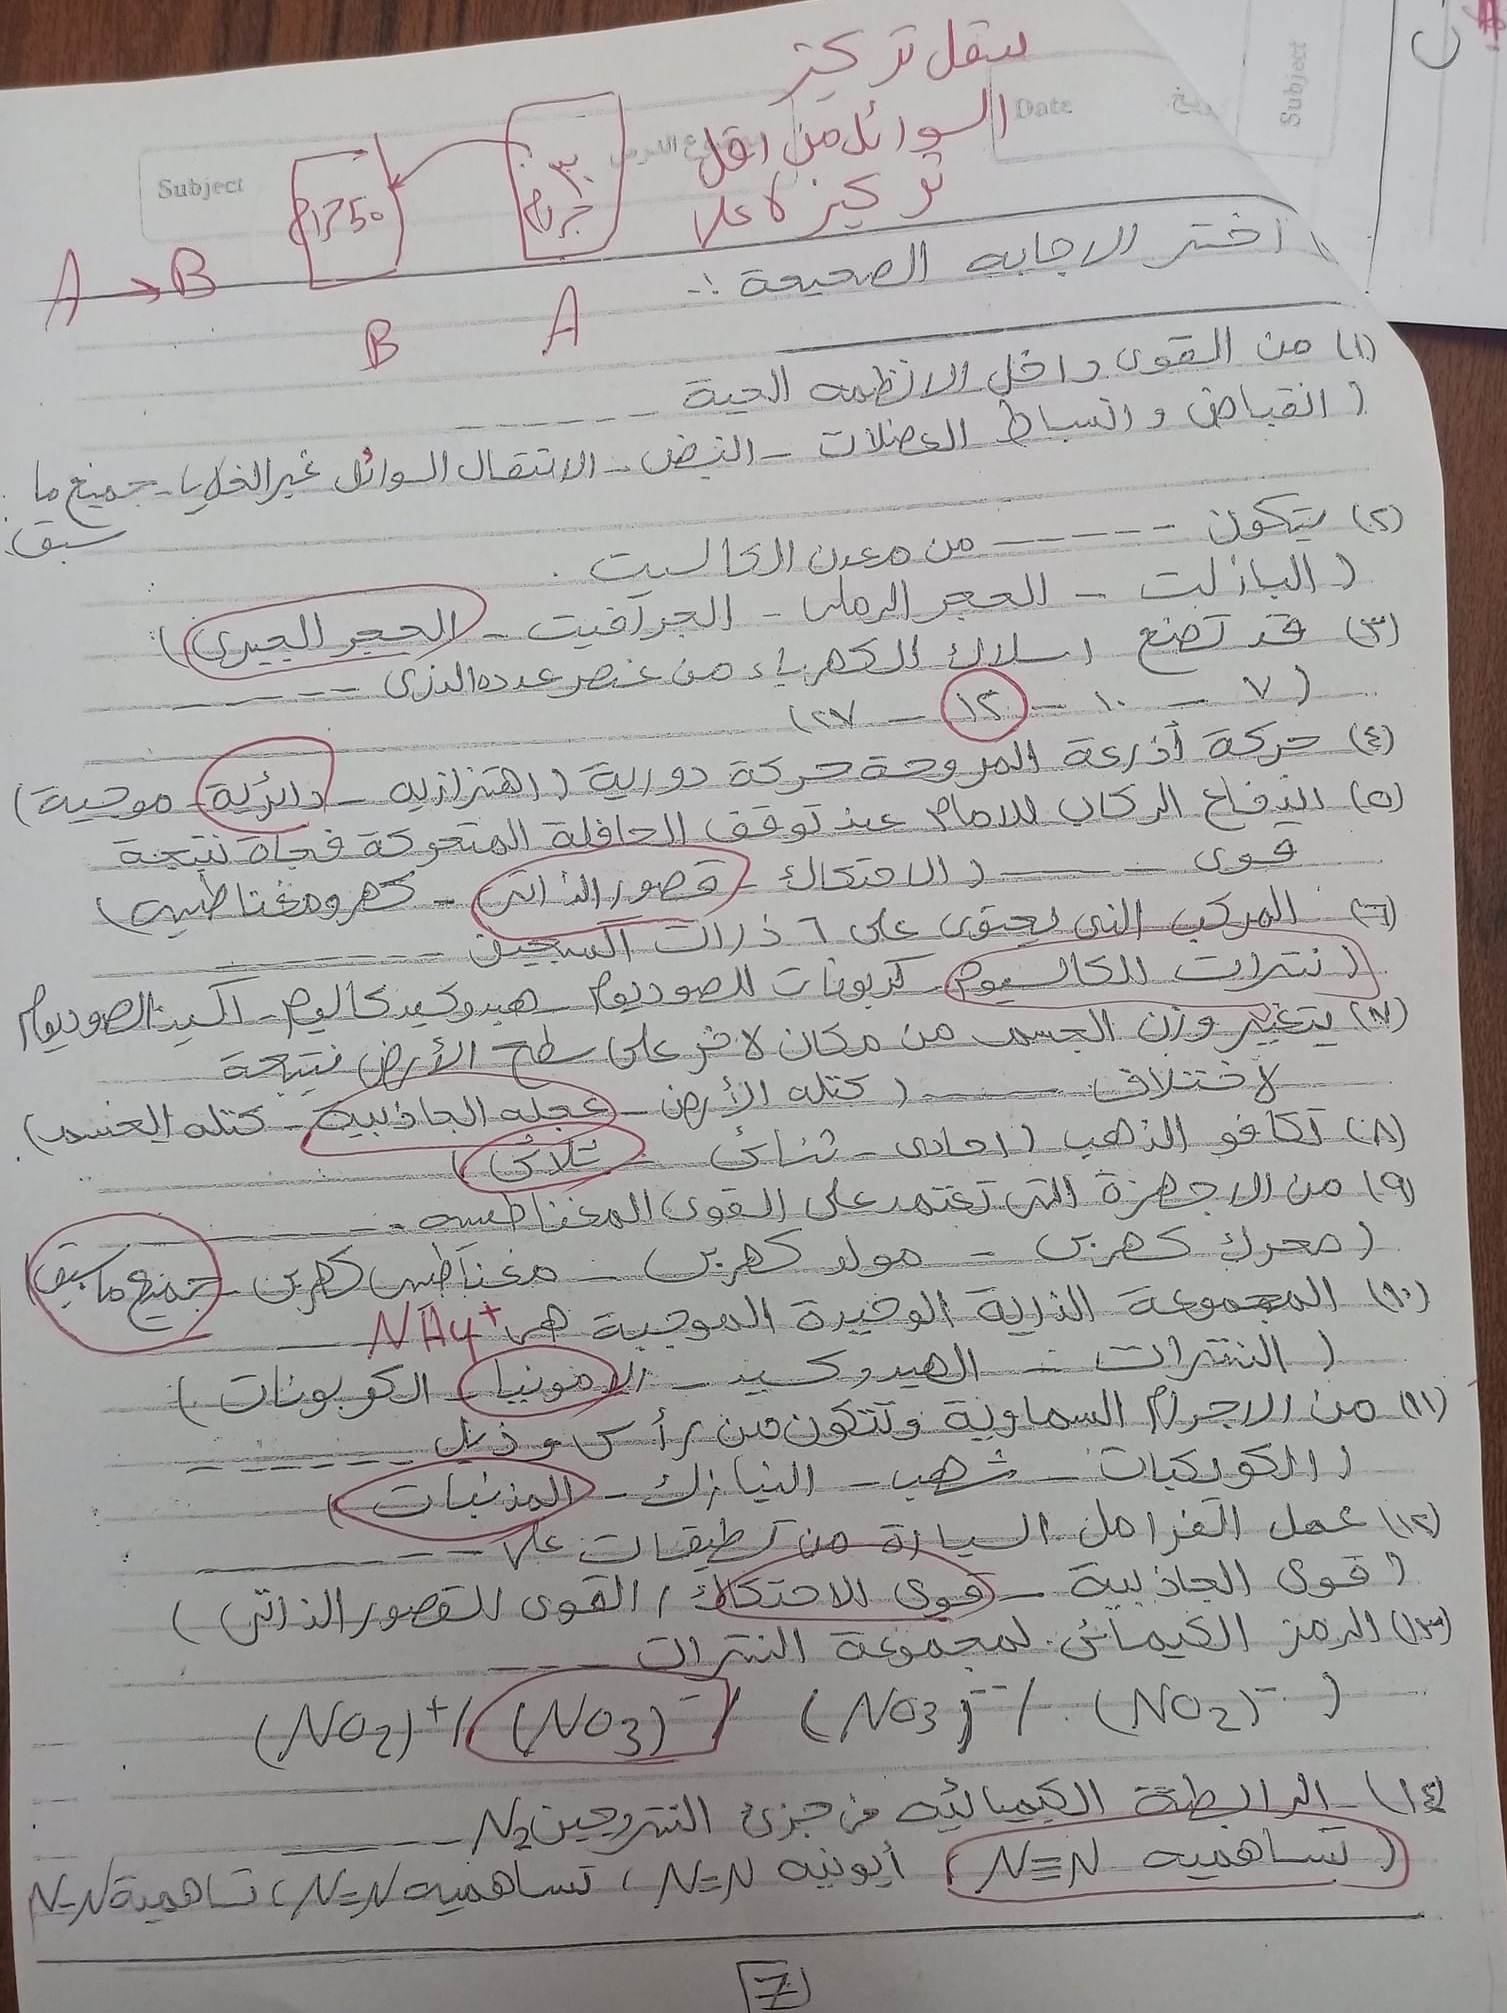 ينتقل تركيز
السوائل من اقل
تركيز لاعلا
Date
Subject
Subject
٣٠ جرام
50 جرام
A → B
B
A
اختر الاجابه الصحيحة :-
(١) من القوى داخل الانظمه الحية -----
( انقباض و انبساط العضلات - النبض - الانتقال السوائل غير الخلايا - جميع ما سبق
(٢) يتكون ----- من معدن الكالسيت .
( البازلت - الحجر الرملى - الجرافيت - الحجر الجيرى )
(٣) قد تصنع اسلاك الكهرباء من عنصر عدده الذرى -----
( ٧ - ١٠ - ١٣ - ٢٧ )
(٤) حركة أذرعة المروحة حركة دورية ( اهتزازيه - دائرية - موجية )
(٥) اندفاع الركاب للامام عند توقف الحافلة المتحركة فجاة نتيجة
قوى ----- ( الاحتكاك - قصور الذاتى - كهرومغناطيسى )
(٦) المركب الذى يحتوى على ٦ ذرات اكسجين -----
( نترات الكالسيوم - كربونات الصوديوم - هيدروكسيد كاليوم - اكسيد الصوديوم
(٧) يتغير وزن الجسم من مكان لاخر على سطح الأرض نتيجة
لاختلاف ----- ( كتله الأرض - عجله الجاذبية - كتله الجسم )
(٨) تكافو الذهب ( احادى - ثنائى - ثلاثى )
(٩) من الاجهزة التى تعتمد على القوى المغناطيسيه -----
( محرك كهربى - مولد كهربى - مغناطيس كهربى - جميع ما سبق )
(١٠) المجموعة الذرية الوحيدة الموجبة هى NH4+
( النترات - الهيدروكسيد - الامونيا - الكربونات )
(١١) من الاجرام السماوية وتتكون من رأس و ذيل -----
( الكويكبات - شهب - النيازك - المذنبات )
(١٢) عمل الفرامل السيارة من تطبقات على -----
( قوى الجاذبية - قوى الاحتكاك / القوى القصور الذاتى )
(١٣) الرمز الكيمائى لمجموعة النترات -----
(NO2)+ / (NO3)- / (NO3)-- / (NO2)- )
(١٤) الرابطة الكيميائيه فى جزئ النتروجين N2 -----
( تساهميه N≡N ، أيونيه N=N ، تساهميه N=N ، تساهمية N-N
7